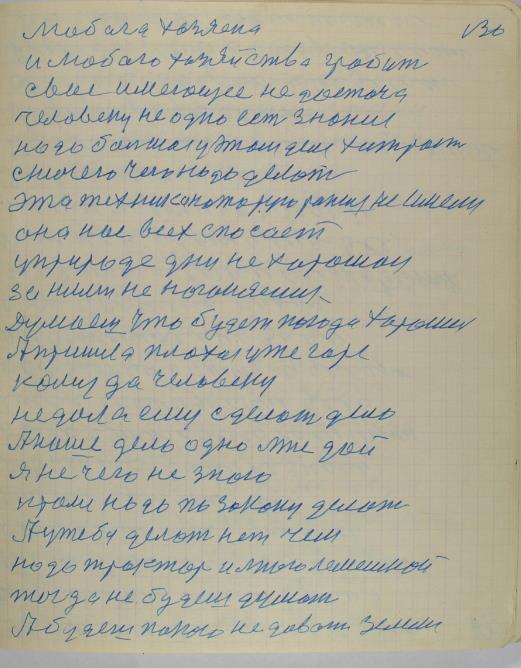 любога хозяена 136
и любого хозяйства гробит
свое имеющее не досточа
человеку не одно ест знония
нодо болшоя у этом деле хитрост
с ничего чего нодо делот
эта техника котороую раншы не имели
она нас всех спосает
у природе дни не хорошои
за ними не погонишся
Думаеш что будет погода хороша
А пришла плохая уже горе
кому да человеку
не дола ему сделот дело
А наше дело одно мне дой
я не чего не зного
нодо по закону делот
А у тебя делот нет чем
нодо трактор и много лемешной
тогда не будеш думот
А будеш покою не довот земли